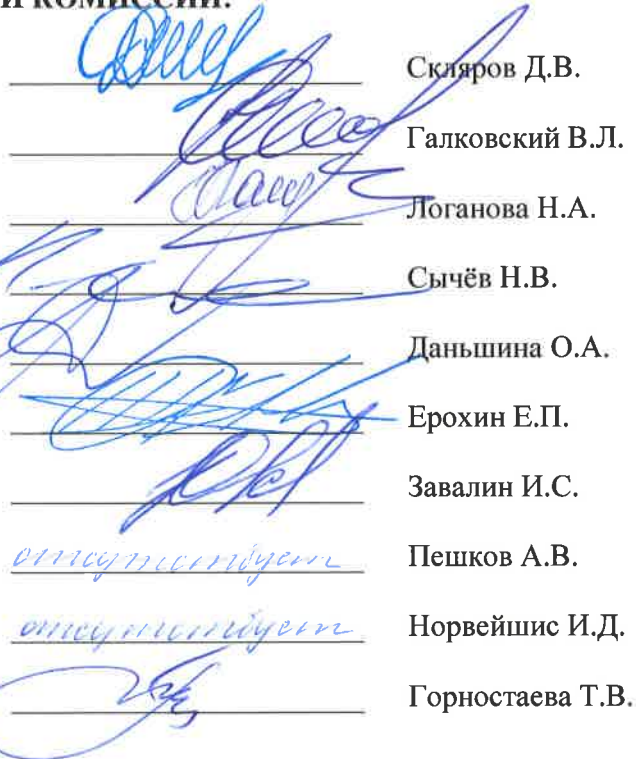 И КОМИССИИ:
Скляров Д.В.
Галковский В.Л.
Логанова Н.А.
Сычёв Н.В.
Даньшина О.А.
Ерохин Е.П.
Завалин И.С.
отсутствует Пешков А.В.
отсутствует Норвейшис И.Д.
Горностаева Т.В.